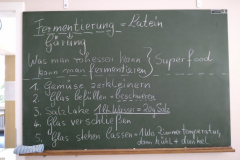 Fermentierung = Latein
Gärung
Was man roh essen kann } Superfood
kann man fermentieren
1. Gemüse zerkleinern
2. Glas befüllen = beschweren
3. Salzlake 1 l Wasser = 20g Salz
4. Glas verschließen
5. Glas stehen lassen = Zimmertemperatur,
dann kühl + dunkel